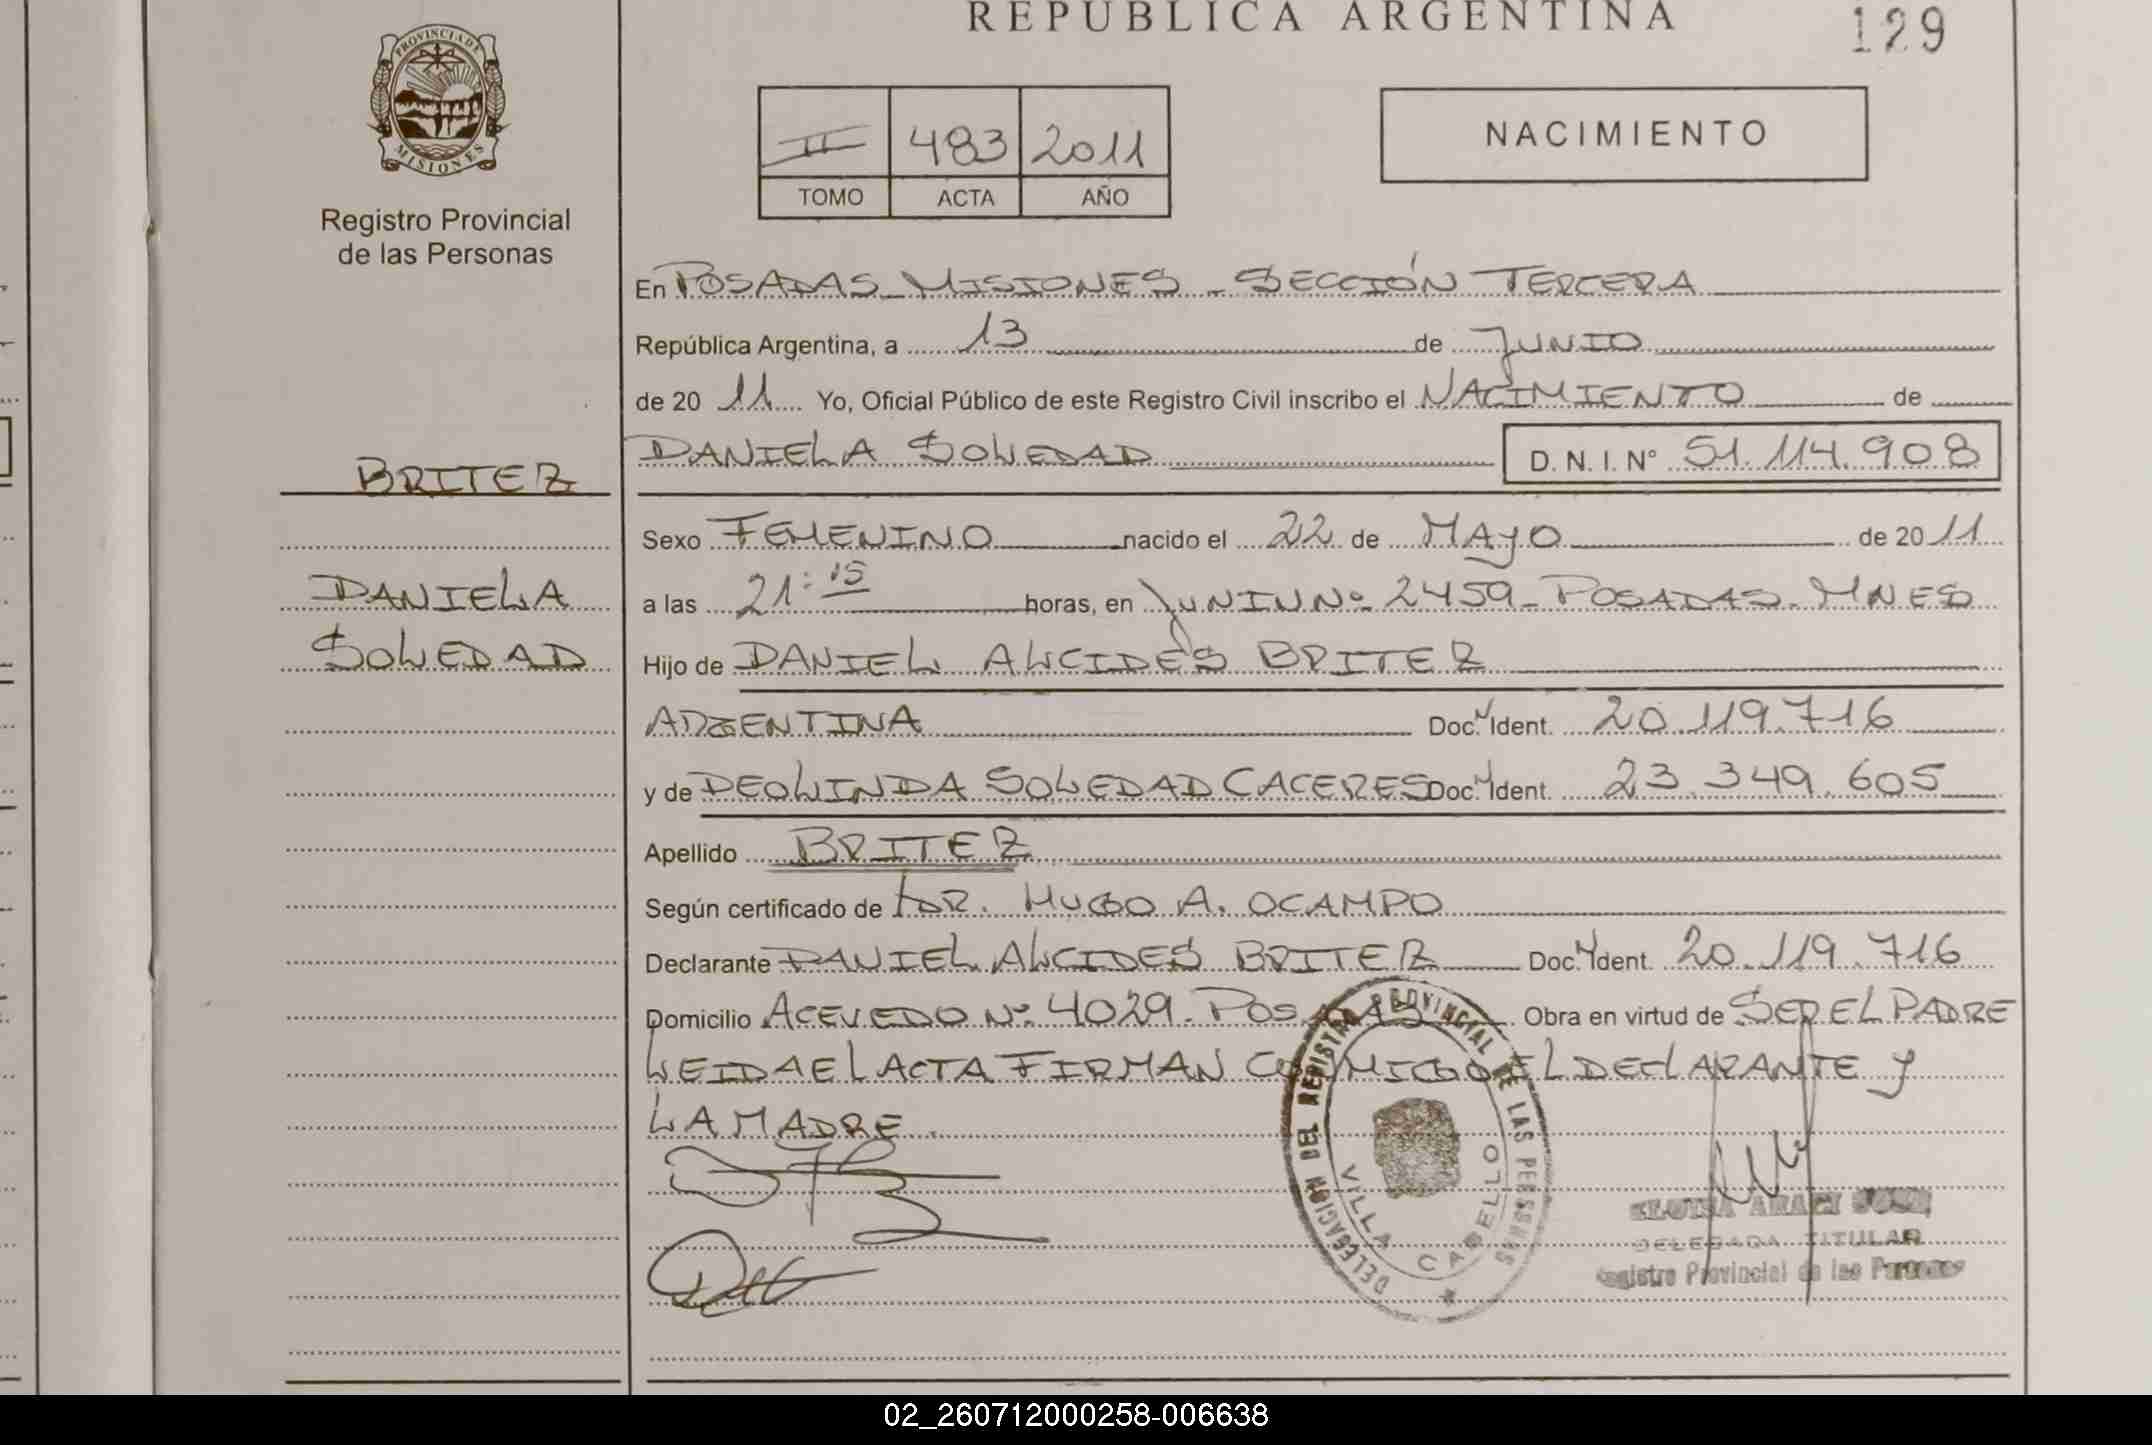 REPUBLICA ARGENTINA
129
PROVINCIA DE
MISIONES
Registro Provincial
de las Personas
II 483 2011
TOMO ACTA AÑO
NACIMIENTO
En POSADAS MISIONES - SECCIÓN TERCERA
República Argentina, a 13 de JUNIO
de 20 11 Yo, Oficial Público de este Registro Civil inscribo el NACIMIENTO de
BRITEZ
DANIELA SOLEDAD D. N. I. N° 51.114.908
Sexo FEMENINO nacido el 22 de MAYO de 20 11
DANIELA
a las 21:15 horas, en JUNIN N° 2459 - POSADAS - MNES
SOLEDAD
Hijo de DANIEL ALCIDES BRITEZ
ARGENTINA Doc. Ident. 20.119.716
y de DEOLINDA SOLEDAD CACERES Doc. Ident. 23.349.605
Apellido BRITEZ
Según certificado de DR. HUGO A. OCAMPO
Declarante DANIEL ALCIDES BRITEZ Doc. Ident. 20.119.716
Domicilio ACEVEDO N° 4029 - POSADAS Obra en virtud de SER EL PADRE
LEIDA EL ACTA FIRMAN CONMIGO EL DECLARANTE Y
LA MADRE.
DELEGACION DEL REGISTRO PROVINCIAL DE LAS PERSONAS
VILLA CABELLO
DELEGADA TITULAR
Registro Provincial de las Personas
02_260712000258-006638